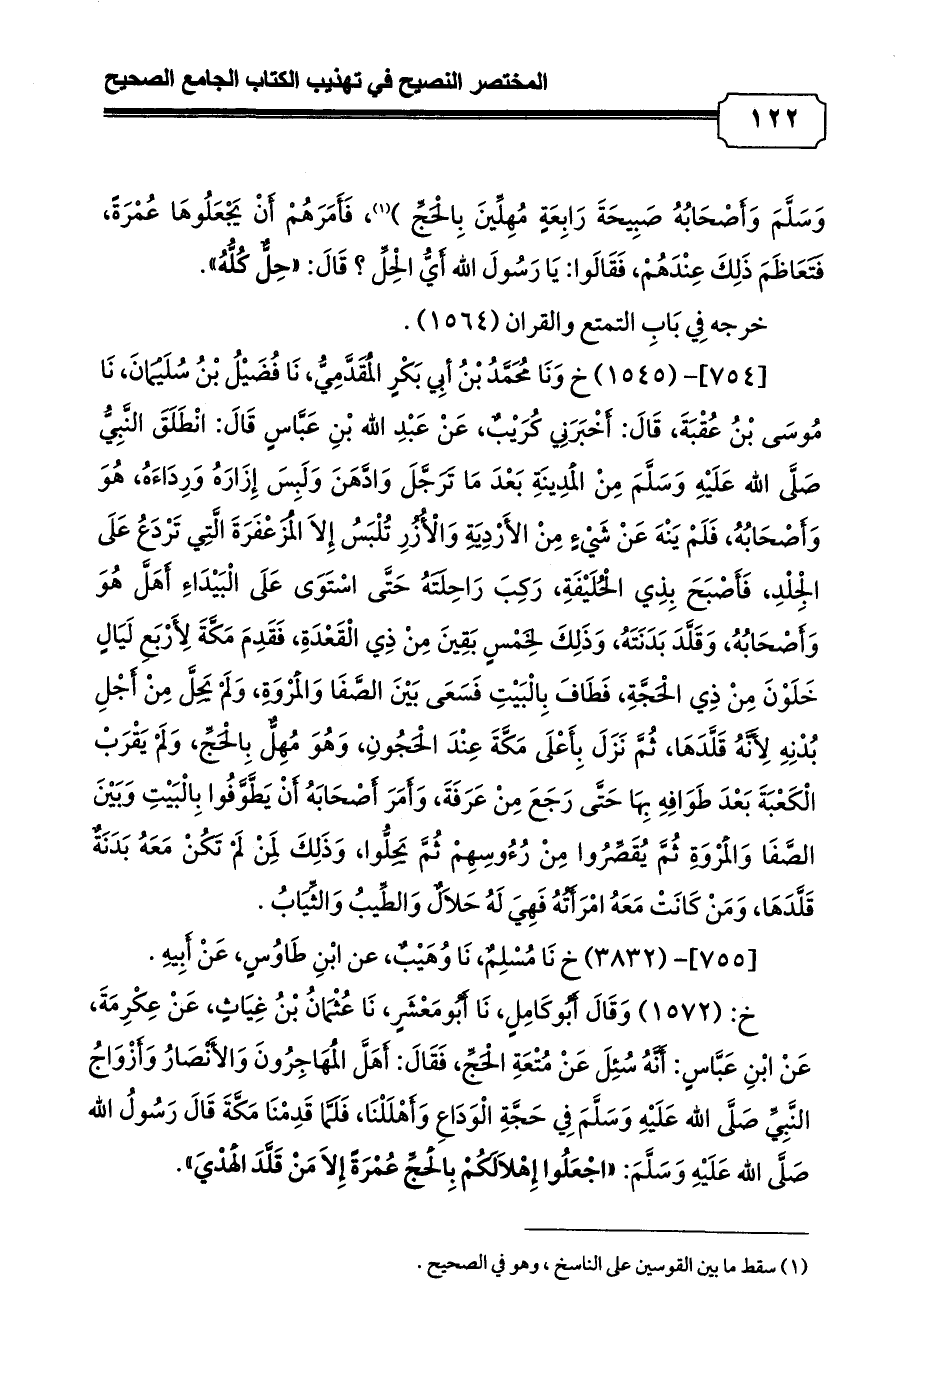 المختصر النصيح في تهذيب الكتاب الجامع الصحيح
١٢٢
وَسَلَّمَ وَأَصْحَابُهُ صَبِيحَةَ رَابِعَةٍ مُهِلِّينَ بِالْحَجِّ )(١)، فَأَمَرَهُمْ أَنْ يَجْعَلُوهَا عُمْرَةً،
فَتَعَاظَمَ ذَلِكَ عِنْدَهُمْ، فَقَالُوا: يَا رَسُولَ الله أَيُّ الْحِلِّ ؟ قَالَ: «حِلٌّ كُلُّهُ».
خرجه فِي بَابِ التمتع والقران (١٥٦٤) .
[٧٥٤]- (١٥٤٥) خ وَنَا مُحَمَّدُ بْنُ أبِي بَكْرٍ الْمُقَدَّمِيُّ، نَا فُضَيْلُ بْنُ سُلَيْمَانَ، نَا
مُوسَى بْنُ عُقْبَةَ، قَالَ: أَخْبَرَنِي كُرَيْبٌ، عَنْ عَبْدِ الله بْنِ عَبَّاسٍ قَالَ: انْطَلَقَ النَّبِيُّ
صَلَّى الله عَلَيْهِ وَسَلَّمَ مِنْ الْمَدِينَةِ بَعْدَ مَا تَرَجَّلَ وَادَّهَنَ وَلَبِسَ إِزَارَهُ وَرِدَاءَهُ، هُوَ
وَأَصْحَابُهُ، فَلَمْ يَنْهَ عَنْ شَيْءٍ مِنْ الأَرْدِيَةِ وَالْأُزُرِ تُلْبَسُ إِلاَ الْمُزَعْفَرَةَ الَّتِي تَرْدَعُ عَلَى
الْجِلْدِ، فَأَصْبَحَ بِذِي الْحُلَيْفَةِ، رَكِبَ رَاحِلَتَهُ حَتَّى اسْتَوَى عَلَى الْبَيْدَاءِ أَهَلَّ هُوَ
وَأَصْحَابُهُ، وَقَلَّدَ بَدَنَتَهُ، وَذَلِكَ لِخَمْسٍ بَقِينَ مِنْ ذِي الْقَعْدَةِ، فَقَدِمَ مَكَّةَ لِأَرْبَعِ لَيَالٍ
خَلَوْنَ مِنْ ذِي الْحَجَّةِ، فَطَافَ بِالْبَيْتِ فَسَعَى بَيْنَ الصَّفَا وَالْمَرْوَةِ، وَلَمْ يَحِلَّ مِنْ أَجْلِ
بُدْنِهِ لِأَنَّهُ قَلَّدَهَا، ثُمَّ نَزَلَ بِأَعْلَى مَكَّةَ عِنْدَ الْحَجُونِ، وَهُوَ مُهِلٌّ بِالْحَجِّ، وَلَمْ يَقْرَبْ
الْكَعْبَةَ بَعْدَ طَوَافِهِ بِهَا حَتَّى رَجَعَ مِنْ عَرَفَةَ، وَأَمَرَ أَصْحَابَهُ أَنْ يَطَّوَّفُوا بِالْبَيْتِ وَبَيْنَ
الصَّفَا وَالْمَرْوَةِ ثُمَّ يُقَصِّرُوا مِنْ رُءُوسِهِمْ ثُمَّ يَحِلُّوا، وَذَلِكَ لِمَنْ لَمْ تَكُنْ مَعَهُ بَدَنَةٌ
قَلَّدَهَا، وَمَنْ كَانَتْ مَعَهُ امْرَأَتُهُ فَهِيَ لَهُ حَلَالٌ وَالطِّيبُ وَالثِّيَابُ .
[٧٥٥]- (٣٨٣٢) خ نَا مُسْلِمٌ، نَا وُهَيْبٌ، عن ابْنِ طَاوُسٍ، عَنْ أَبِيهِ .
خ: (١٥٧٢) وَقَالَ أَبُو كَامِلٍ، نَا أَبُومَعْشَرٍ، نَا عُثْمَانُ بْنُ غِيَاثٍ، عَنْ عِكْرِمَةَ،
عَنْ ابْنِ عَبَّاسٍ: أَنَّهُ سُئِلَ عَنْ مُتْعَةِ الْحَجِّ، فَقَالَ: أَهَلَّ الْمُهَاجِرُونَ وَالأَنْصَارُ وَأَزْوَاجُ
النَّبِيِّ صَلَّى الله عَلَيْهِ وَسَلَّمَ فِي حَجَّةِ الْوَدَاعِ وَأَهْلَلْنَا، فَلَمَّا قَدِمْنَا مَكَّةَ قَالَ رَسُولُ الله
صَلَّى الله عَلَيْهِ وَسَلَّمَ: «اجْعَلُوا إِهْلاَلَكُمْ بِالْحَجِّ عُمْرَةً إِلاَ مَنْ قَلَّدَ الْهَدْيَ».
(١) سقط ما بين القوسين على الناسخ ، وهو في الصحيح .